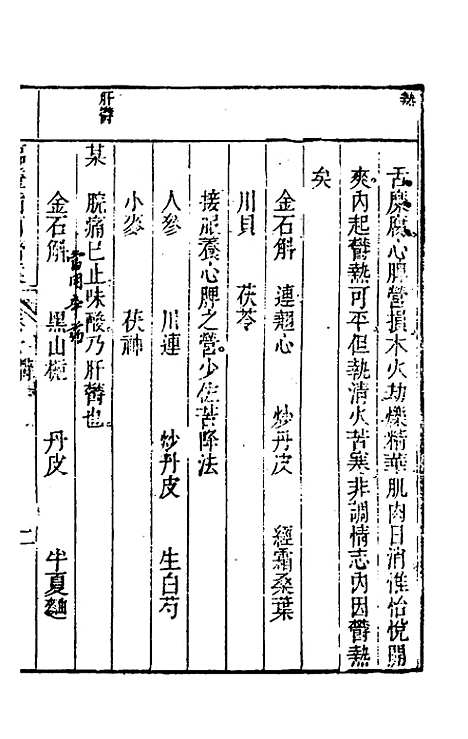 熱
舌糜腐心脾營損木火劫爍精華肌肉日消惟怡悅開
爽內起鬱熱可平但執清火苦寒非調情志內因鬱熱
矣
金石斛　連翹心　炒丹皮　經霜桑葉
川貝　茯苓
接服養心脾之營少佐苦降法
人參　川連　炒丹皮　生白芍
小麥　茯神
肝鬱
某　脘痛已止味酸乃肝鬱也
金石斛　黑山梔　丹皮　半夏麯